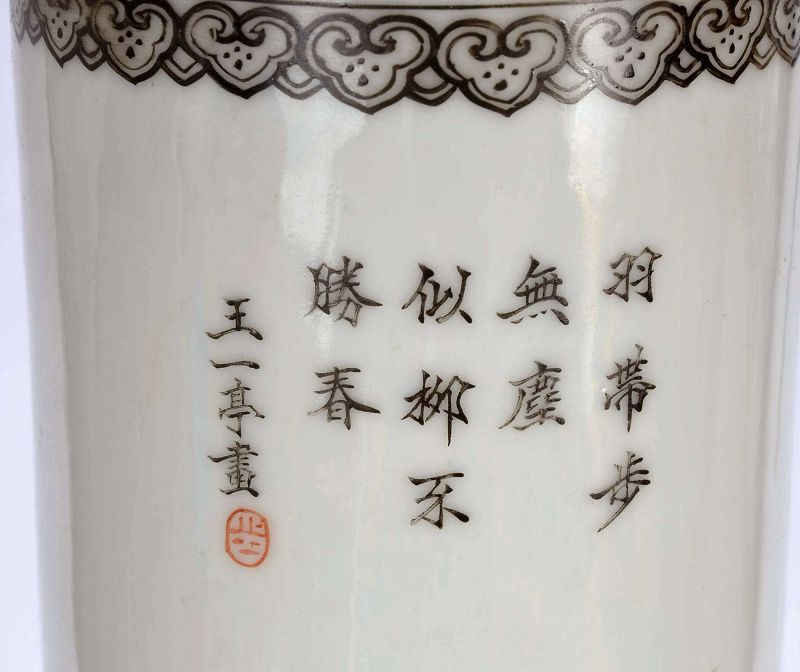 羽帶步
無塵
似柳不
勝春
王一亭畫